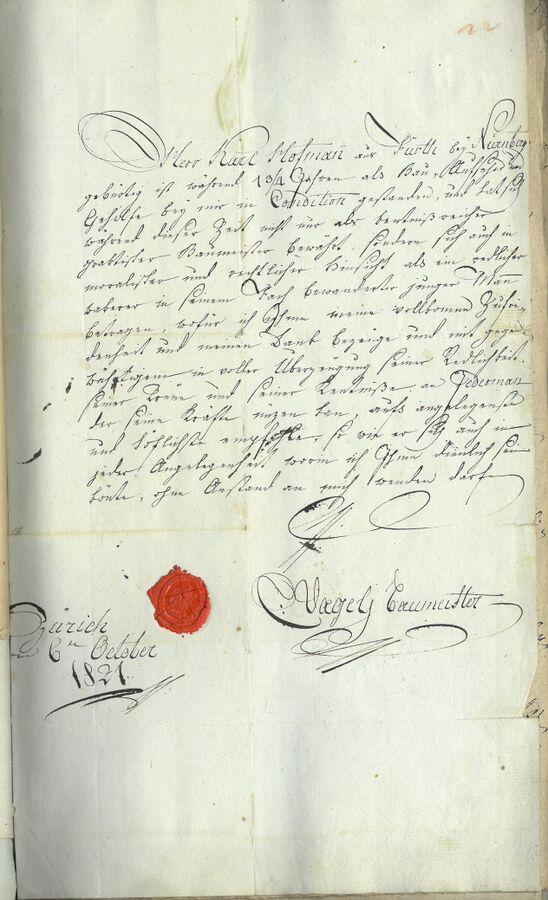 22
Herr Karl Hofmañ aus Fürth bey Nürnberg
gebürtig ist während 1 3/4 Jahren als Bau Aufseher und
Gehilfe bey mir in Condition gestanden, und hat sich
während dieser Zeit nicht nur als kentnißreicher
praktischer Baumeister bewährt, sondern sich auch in
moralischer und rechtlicher Hinsicht als ein redlicher
wakerer in seinem Fach bewanderter junger Mann
betragen, wofür ich Ihme meine vollkomne Zufri-
denheit und meinen Dank bezeuge und mit gegen-
wärtigem in voller Überzeugung seiner Redlichkeit,
seiner Treue und seiner Kentniße, an Jederman
der seine Kräfte nüzen kan, aufs angelegenste
und höflichste empfehle, so wie er sich auch in
jeder Angelegenheit worin ich Ihme dienlich sein
könte, ohne Anstand an mich wenden darf.
C. Vœgelj Baumeister
Zürich
den 6ten October
1821.